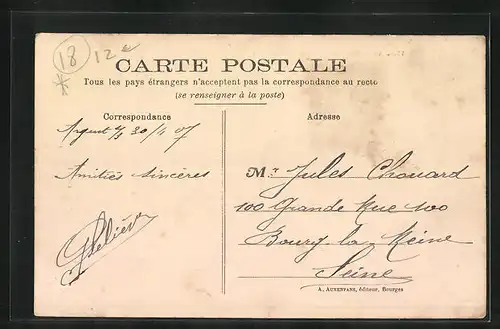 18
12
CARTE POSTALE
Tous les pays étrangers n'acceptent pas la correspondance au recto
(se renseigner à la poste)
Correspondance
Argent s/s 30/4 07
Amitiés sincères
Adresse
Mr Jules Chouard
100 Grande Rue 100
Bourg-la-Reine
Seine
A. AUXENFANS, éditeur, Bourges